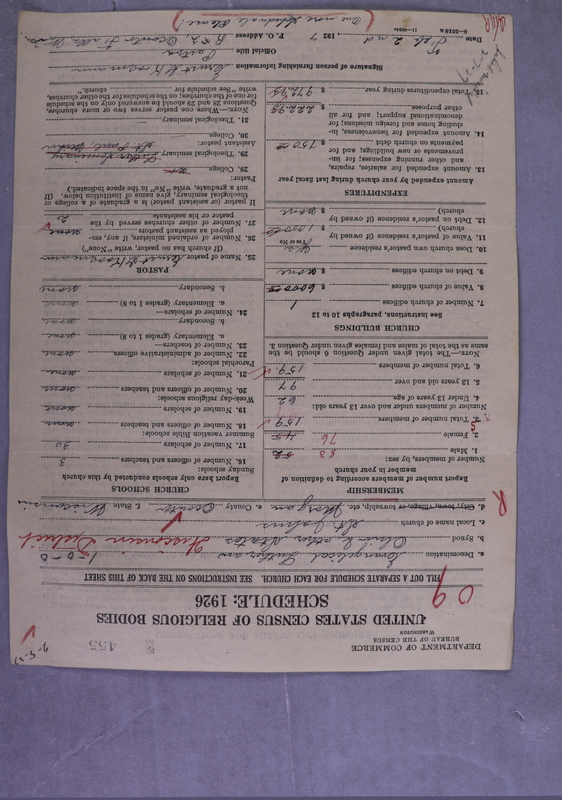 455
DEPARTMENT OF COMMERCE
BUREAU OF THE CENSUS
WASHINGTON
UNITED STATES CENSUS OF RELIGIOUS BODIES
SCHEDULE: 1926
09
FILL OUT A SEPARATE SCHEDULE FOR EACH CHURCH. SEE INSTRUCTIONS ON THE BACK OF THIS SHEET
a. Denomination Evangelical Lutheran 1-0-0
b. Synod Ohio & other States Wisconsin District
c. Local name of church St Johns
d. City, town, village, or township, etc. Morgan e. County Oconto f. State Wisconsin
R
MEMBERSHIP
Report number of members according to definition of
member in your church
Number of members, by sex:
1. Male 83
2. Female 76
3. Total number of members 159
Number of members under and over 13 years old:
4. Under 13 years of age 62
5. 13 years old and over 97
6. Total number of members 159
NOTE.—The total given under Question 6 should be the
same as the total of males and females given under Question 3.
CHURCH BUILDINGS
See instructions, paragraphs 10 to 12
7. Number of church edifices 1
8. Value of church edifices $ 6000
9. Debt on church edifices $ none
10. Does church own pastor's residence
(Yes or No)
11. Value of pastor's residence (if owned by
church) $
12. Debt on pastor's residence (if owned by
church) $ none
EXPENDITURES
Amount expended by your church during last fiscal year
13. Amount expended for salaries, repairs,
and other running expenses; for im-
provements or new building; and for
payments on church debt $ 750
14. Amount expended for benevolences, in-
cluding home and foreign missions; for
denominational support; and for all
other purposes $ 222.95
15. Total expenditures during year $ 972.95
CHURCH SCHOOLS
Report here only schools conducted by this church
Sunday schools:
16. Number of officers and teachers 3
17. Number of scholars 30
Summer vacation Bible schools:
18. Number of officers and teachers none
19. Number of scholars none
Week-day religious schools:
20. Number of officers and teachers none
21. Number of scholars none
Parochial schools:
22. Number of administrative officers none
23. Number of teachers—
a. Elementary (grades 1 to 8) none
b. Secondary none
24. Number of scholars—
a. Elementary (grades 1 to 8) none
b. Secondary none
PASTOR
25. Name of pastor
(If church has no pastor, write "None")
26. Number of ordained ministers, if any, em-
ployed as assistant pastors none
27. Number of other churches served by the
pastor or his assistants 2
If pastor (or assistant pastor) is a graduate of a college or
theological seminary, give name of institution below. (If
not a graduate, write "No" in the space indicated.)
Pastor:
28. College
29. Theological seminary Luther Seminary
St Paul Minn
Assistant pastor:
30. College
31. Theological seminary
NOTE.—Where one pastor serves two or more churches,
Questions 28 and 29 should be answered only on the schedule
for one of the churches; on the schedule for the other churches,
write "See schedule for church."
Signature of person furnishing information
Official title Pastor
Date Feb 2nd 1927 P. O. Address R # 2 Oconto Falls, Wis
(One more Schedule Please)